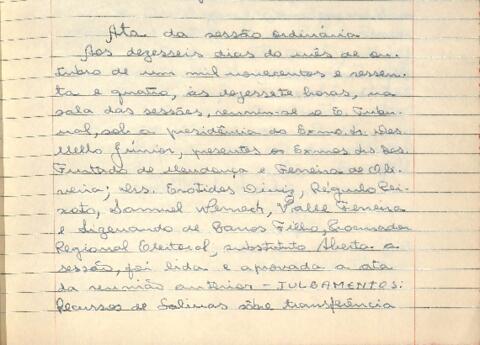 Ata da sessão ordinária
Aos dezesseis dias do mês de ou-
tubro de um mil novecentos e sessen-
ta e quatro, às dezessete horas, na
sala das sessões, reuniu-se o E. Tribu-
nal, sob a presidência do Exmo. Sr. Des.
Mello Júnior, presentes os Exmos. Srs. Des.
Furtado de Mendonça e Ferreira de Oli-
veira; Drs. Erotides Diniz, Reguedo Pei-
xoto, Samuel Werneck, Valle Ferreira
e de Barros Filho, Procurador
Regional Eleitoral, substituto Aberta a
sessão, foi lida e aprovada a ata
da reunião anterior - JULGAMENTOS:
Recursos de Salinas sôbre transferência